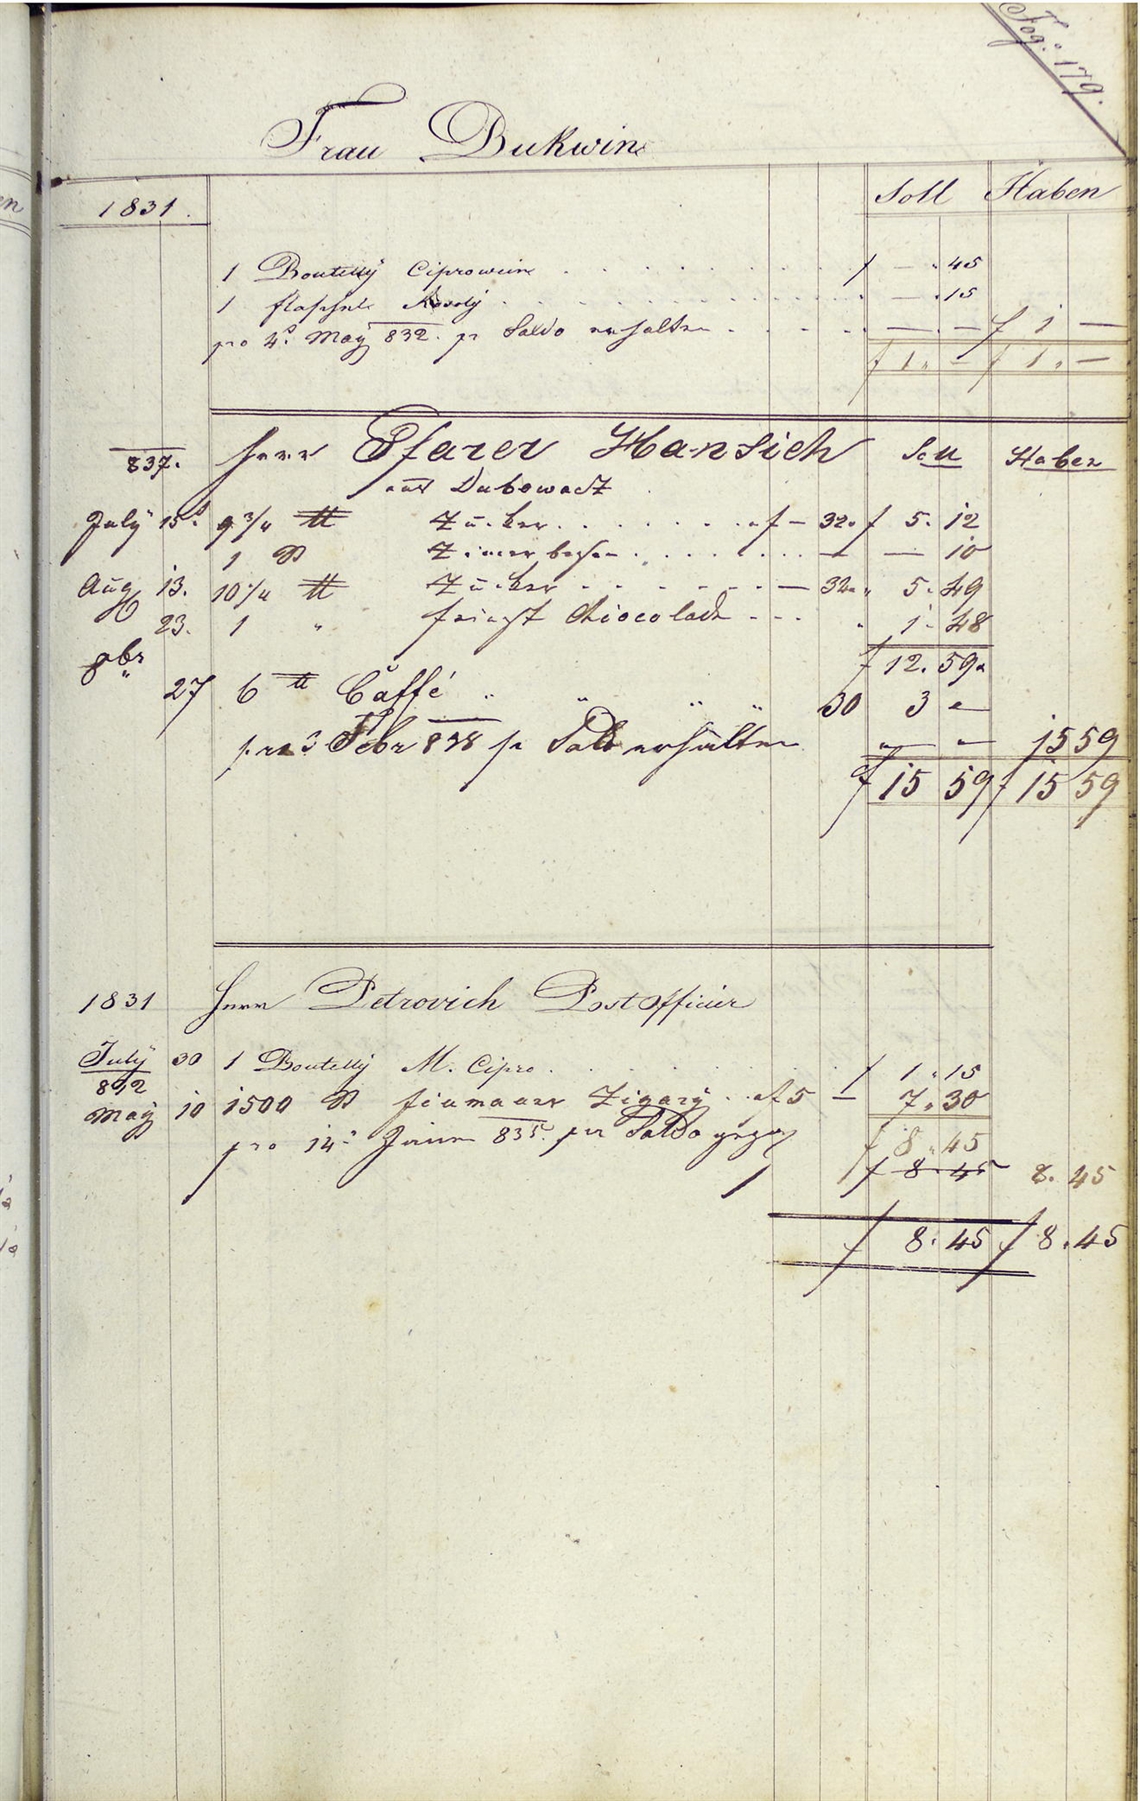 Fog: 179.
Frau Bukwin
1831. Soll Haben
1 Boutelly Ciprowein . . . . . . . . — . 45
1 flaschel Rosoly . . . . . . . . — . 15
pro 4t. May 832. pr Saldo erhalten . . . . — . — f 1 —
f 1 „ — f 1 „ —
837. Herr Pfarer Hansich Soll Haben
aus Dubowacz
July 15t 9 3/4 ℔ Zucker . . . . . . . . f — 32 „ f 5 . 12
1 St Zimerbesen . . . . . . . — — 10
Aug 13. 10 ℔ Zucker . . . . . . . — 32 „ „ 5 . 49
23. 1 „ feinst Chiocolade - - - „ 1 . 48
f 12 . 59 „
8br 27 6 ℔ Caffé „ „ „ „ 30 3 „ —
pro 3 Febr 838 pr Saldo erhalten „ — „ — 15 59
f 15 59 f 15 59
1831 Herr Petrovich Postofficier
July 30 1 Boutelly M. Cipro . . . . . . . . 1 . 15
832
May 10 1500 St fiumaner Zigary . . af 5 — 7 . 30
pro 14t Jäner 835. pr Saldo f 8 . 45
f 8 . 45 8 . 45
f 8 . 45 f 8 . 45